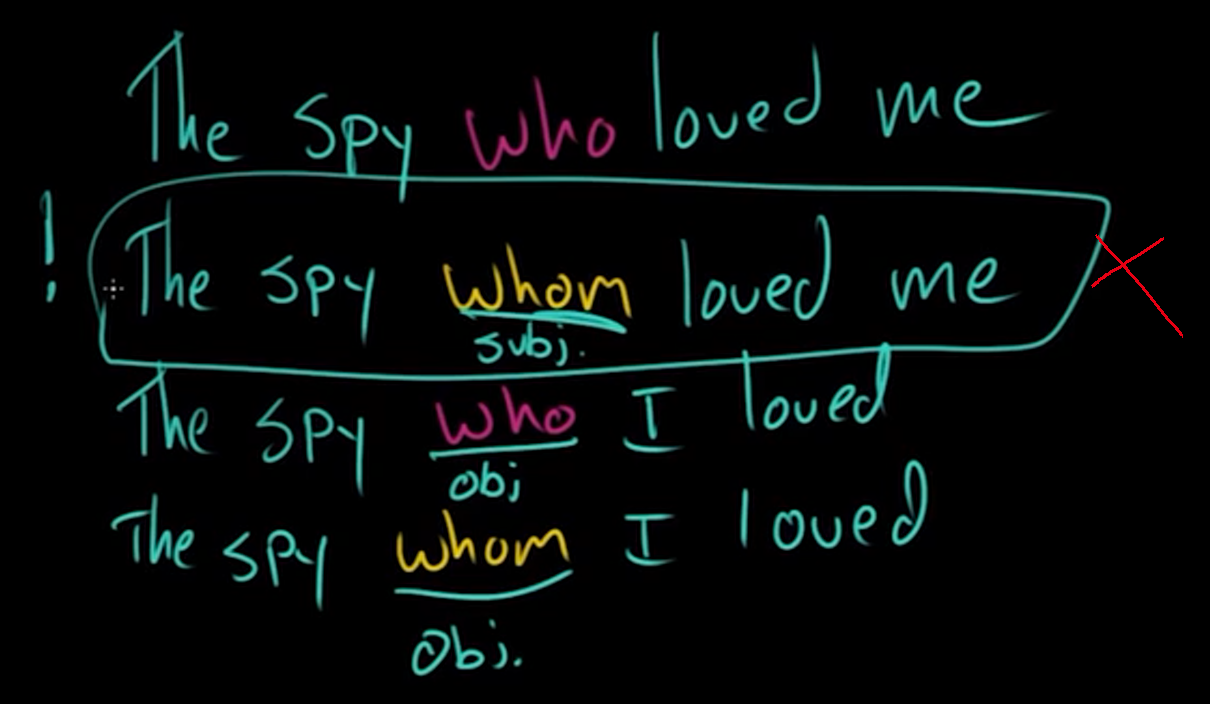 The spy who loved me
! The spy whom loved me
subj.
The spy who I loved
obj
The spy whom I loved
obj.